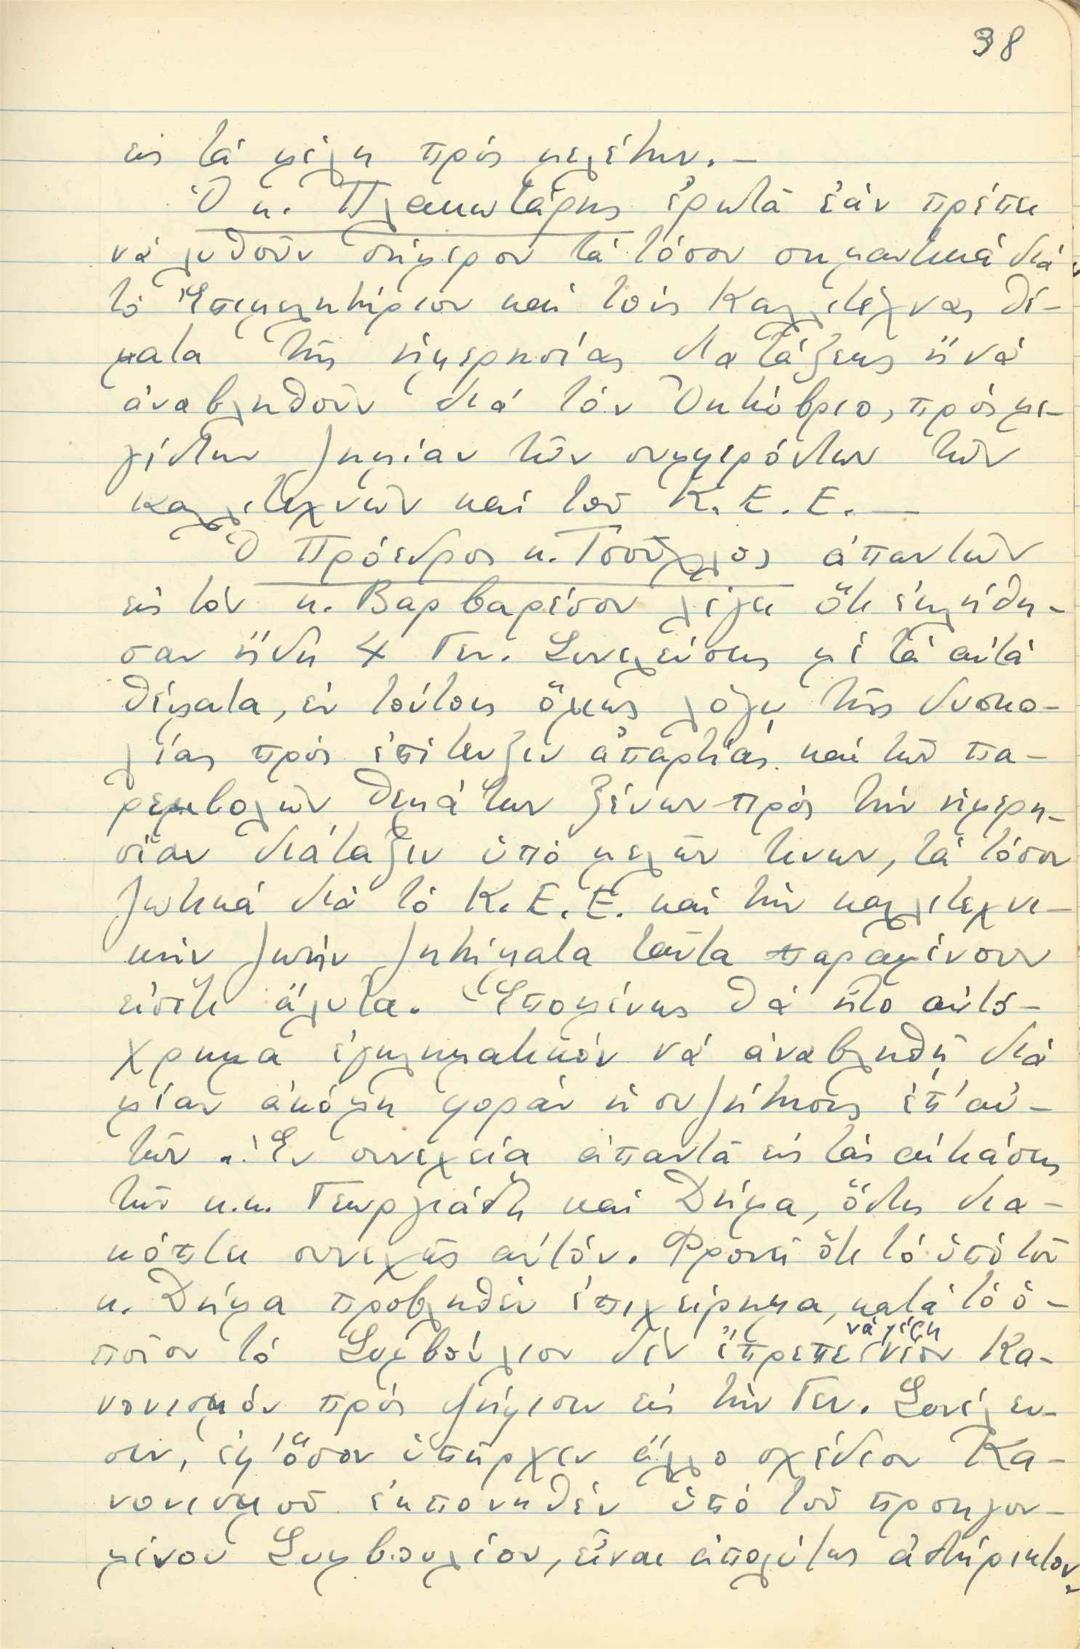 38
εἰς τά μέλη πρός μελέτην. —
Ὁ κ. Πλακωτάρης ἐρωτᾶ ἐάν πρέπει
νά λυθοῦν σήμερον τά τόσον σημαντικά διά
τό Ἐπιμελητήριον καί τούς Καλλιτέχνας θέ-
ματα τῆς ἡμερησίας διατάξεως ἤ νά
ἀναβληθοῦν διά τόν Ὀκτώβριο, πρός με-
γίστην ζημίαν τῶν συμφερόντων τῶν
καλλιτεχνῶν καί τοῦ Κ.Ε.Ε. —
Ὁ Πρόεδρος κ. Τσοῦχλος ἀπαντῶν
εἰς τόν κ. Βαρβαρέσον λέγει ὅτι ἐκλήθη-
σαν ἤδη 4 Γεν. Συνελεύσεις μέ τά αὐτά
θέματα, ἐν τούτοις ὅμως λόγῳ τῆς δυσκο-
λίας πρός ἐπίτευξιν ἀπαρτίας καί τῶν πα-
ρεμβολῶν θεμάτων ξένων πρός τήν ἡμερη-
σίαν διάταξιν ὑπό μελῶν τινων, τά τόσον
ζωτικά διά τό Κ.Ε.Ε. καί τήν καλλιτεχνι-
κήν ζωήν ζητήματα ταῦτα παραμένουν
εἰσέτι ἄλυτα. Ἑπομένως θά ἦτο αὐτό-
χρημα ἐγκληματικόν νά ἀναβληθῇ διά
μίαν ἀκόμη φοράν ἡ συζήτησις ἐπ' αὐ-
τῶν. Ἐν συνεχείᾳ ἀπαντᾶ εἰς τάς αἰτιάσεις
τῶν κ.κ. Γεωργιάδη καί Δήμα, ὅστις δια-
κόπτει συνεχῶς αὐτόν. Φρονεῖ ὅτι τό ὑπό τοῦ
κ. Δήμα προβληθέν ἐπιχείρημα, κατά τό ὁ-
ποῖον τό Συμβούλιον δέν ἔπρεπε νά φέρῃ νέον Κα-
νονισμόν πρός ψήφισιν εἰς τήν Γεν. Συνέλευ-
σιν, ἐφ' ὅσον ὑπῆρχεν ἄλλο σχέδιον Κα-
νονισμοῦ ἐκπονηθέν ὑπό τοῦ προηγου-
μένου Συμβουλίου, εἶναι ἀπολύτως ἀστήρικτον.